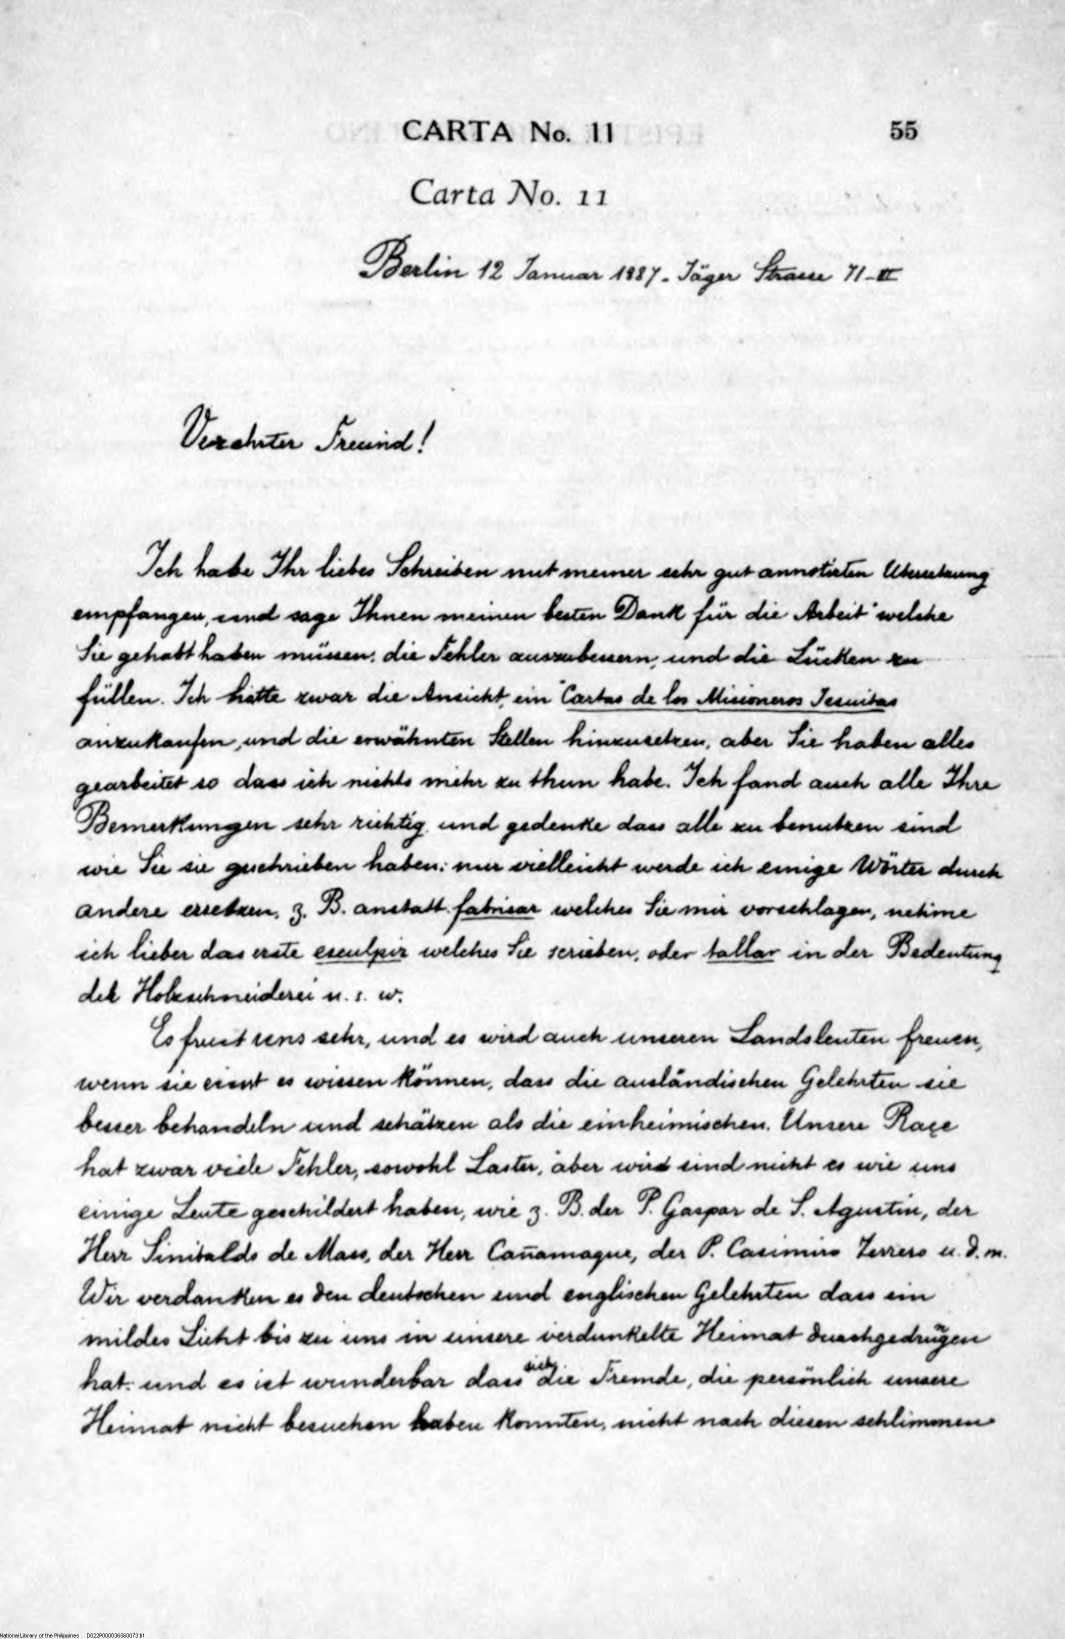 CARTA No. 11 55
Carta No. 11
Berlin 12 Januar 1887 - Jäger Strasse 71-III
Verehrter Freund!
Ich habe Ihr liebes Schreiben mit meiner sehr gut annotirten
empfangen, und sage Ihnen meinen besten Dank für die Arbeit welche
Sie gehabt haben müssen, die Fehler auszubessern, und die Lücken zu
füllen. Ich hatte zwar die Ansicht, ein "Cartas de los Misioneros Jesuitas
anzukaufen, und die erwähnten Stellen hinzusetzen, aber Sie haben alles
gearbeitet so dass ich nichts mehr zu thun habe. Ich fand auch alle Ihre
Bemerkungen sehr richtig, und gedenke dass alle zu benutzen sind
wie Sie sie geschrieben haben: nur vielleicht werde ich einige Wörter durch
andere ersetzen, z. B. anstatt fabricar welches Sie mir vorschlagen, nehme
ich lieber das erste esculpir welches Sie scrieben, oder tallar in der Bedeutung
der Holzschneiderei u. s. w.
Es freut uns sehr, und es wird auch unseren Landsleuten freuen,
wenn sie einst es wissen können, dass die ausländischen Gelehrten sie
besser behandeln und schätzen als die einheimischen. Unsere Raçe
hat zwar viele Fehler, sowohl Laster, aber wir sind nicht es wie uns
einige Leute geschildert haben, wie z. B. der P. Gaspar de S. Agustin, der
Herr Sinibaldo de Mass, der Herr Cañamaque, der P. Casimiro Herrero u. d. m.
Wir verdanken es den deutschen und englischen Gelehrten dass ein
mildes Licht bis zu uns in unsere verdunkelte Heimat durchgedrugen
hat: und es ist wunderbar dass sich die Fremde, die persönlich unsere
Heimat nicht besuchen haben konnten, nicht nach diesen schlimmen
National Library of the Philippines